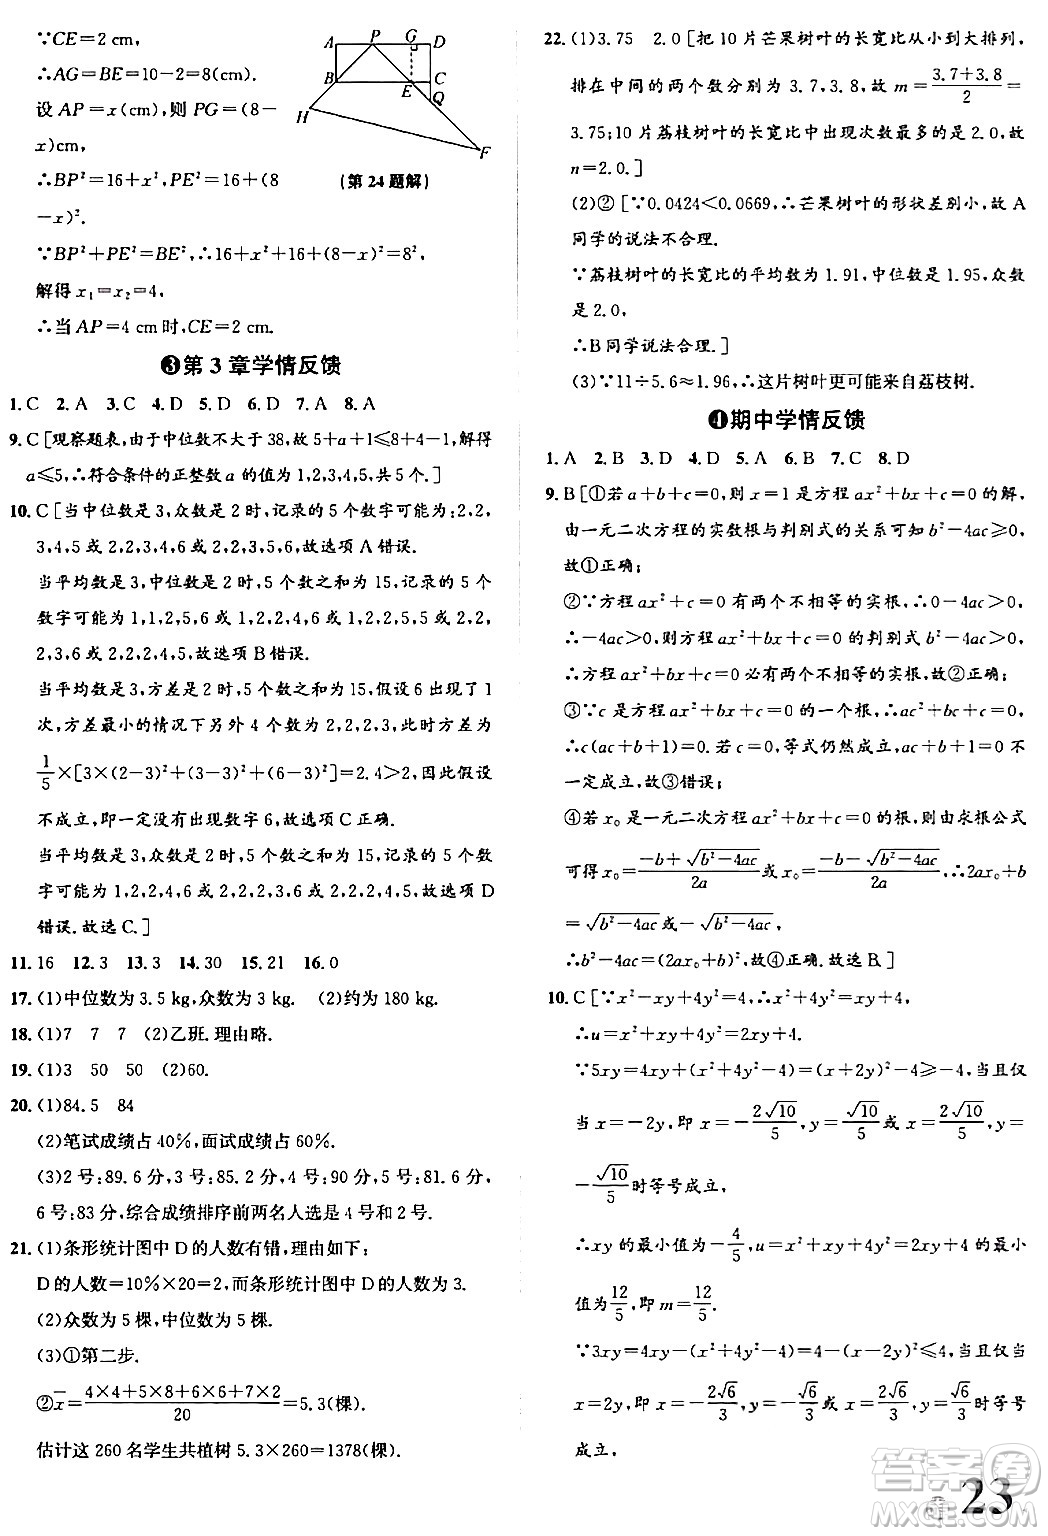 ∵CE=2 cm,
∴AG=BE=10-2=8(cm).
设 AP=x(cm),则 PG=(8-
x)cm,
∴BP²=16+x²,PE²=16+(8
-x)².
A P G D
B E C
Q
H
F
(第 24 题解)
∵BP²+PE²=BE²,∴16+x²+16+(8-x)²=8²,
解得 x₁=x₂=4,
∴当 AP=4 cm 时,CE=2 cm.
❸第 3 章学情反馈
1. C 2. A 3. C 4. D 5. D 6. D 7. A 8. A
9. C[观察题表,由于中位数不大于 38,故 5+a+1≤8+4-1,解得
a≤5,∴符合条件的正整数 a 的值为 1,2,3,4,5,共 5 个.]
10. C[当中位数是 3,众数是 2 时,记录的 5 个数字可能为:2,2,
3,4,5 或 2,2,3,4,6 或 2,2,3,5,6,故选项 A 错误.
当平均数是 3,中位数是 2 时,5 个数之和为 15,记录的 5 个
数字可能为 1,1,2,5,6 或 1,2,2,4,6 或 1,2,2,5,5 或 2,2,2,
2,3,6 或 2,2,2,4,5,故选项 B 错误.
当平均数是 3,方差是 2 时,5 个数之和为 15,假设 6 出现了 1
次,方差最小的情况下另外 4 个数为 2,2,2,3,此时方差为
1/5×[3×(2-3)²+(3-3)²+(6-3)²]=2.4>2,因此假设
不成立,即一定没有出现数字 6,故选项 C 正确.
当平均数是 3,众数是 2 时,5 个数之和为 15,记录的 5 个数
字可能为 1,2,2,4,6 或 1,2,2,5,5 或 2,2,2,3,6,故选项 D
错误.故选 C.]
11. 16 12. 3 13. 3 14. 30 15. 21 16. 0
17. (1)中位数为 3.5 kg,众数为 3 kg. (2)约为 180 kg.
18. (1)7 7 7 (2)乙班.理由略.
19. (1)3 50 50 (2)60.
20. (1)84.5 84
(2)笔试成绩占 40%,面试成绩占 60%.
(3)2 号:89.6 分,3 号:85.2 分,4 号:90 分,5 号:81.6 分,
6 号:83 分,综合成绩排序前两名人选是 4 号和 2 号.
21. (1)条形统计图中 D 的人数有错,理由如下:
D 的人数=10%×20=2,而条形统计图中 D 的人数为 3.
(2)众数为 5 棵,中位数为 5 棵.
(3)①第二步.
②x̄=(4×4+5×8+6×6+7×2)/20=5.3(棵).
估计这 260 名学生共植树 5.3×260=1378(棵).
22. (1)3.75 2.0[把 10 片芒果树叶的长宽比从小到大排列,
排在中间的两个数分别为 3.7,3.8,故 m=(3.7+3.8)/2=
3.75;10 片荔枝树叶的长宽比中出现次数最多的是 2.0,故
n=2.0.]
(2)②[∵0.0424<0.0669,∴芒果树叶的形状差别小,故 A
同学的说法不合理.
∵荔枝树叶的长宽比的平均数为 1.91,中位数是 1.95,众数
是 2.0,
∴B 同学说法合理.]
(3)∵11÷5.6≈1.96,∴这片树叶更可能来自荔枝树.
❹期中学情反馈
1. A 2. B 3. D 4. D 5. A 6. B 7. C 8. D
9. B[①若 a+b+c=0,则 x=1 是方程 ax²+bx+c=0 的解,
由一元二次方程的实数根与判别式的关系可知 b²-4ac≥0,
故①正确;
②∵方程 ax²+c=0 有两个不相等的实根,∴0-4ac>0,
∴-4ac>0,则方程 ax²+bx+c=0 的判别式 b²-4ac>0,
∴方程 ax²+bx+c=0 必有两个不相等的实根,故②正确;
③∵c 是方程 ax²+bx+c=0 的一个根,∴ac²+bc+c=0,
∴c(ac+b+1)=0.若 c=0,等式仍然成立,ac+b+1=0 不
一定成立,故③错误;
④若 x₀ 是一元二次方程 ax²+bx+c=0 的根,则由求根公式
可得 x₀=(-b+√(b²-4ac))/2a或 x₀=(-b-√(b²-4ac))/2a,∴2ax₀+b
=√(b²-4ac)或-√(b²-4ac),
∴b²-4ac=(2ax₀+b)²,故④正确.故选 B.]
10. C[∵x²-xy+4y²=4,∴x²+4y²=xy+4,
∴u=x²+xy+4y²=2xy+4.
∵5xy=4xy+(x²+4y²-4)=(x+2y)²-4≥-4,当且仅
当 x=-2y,即 x=-2√10/5,y=√10/5或 x=2√10/5,y=
-√10/5时等号成立,
∴xy 的最小值为-4/5,u=x²+xy+4y²=2xy+4 的最小
值为12/5,即 m=12/5.
∵3xy=4xy-(x²+4y²-4)=4-(x-2y)²≤4,当且仅当
x=2y,即 x=2√6/3,y=√6/3或 x=-2√6/3,y=-√6/3时等号
成立,
答案圈
MXQE.COM
23